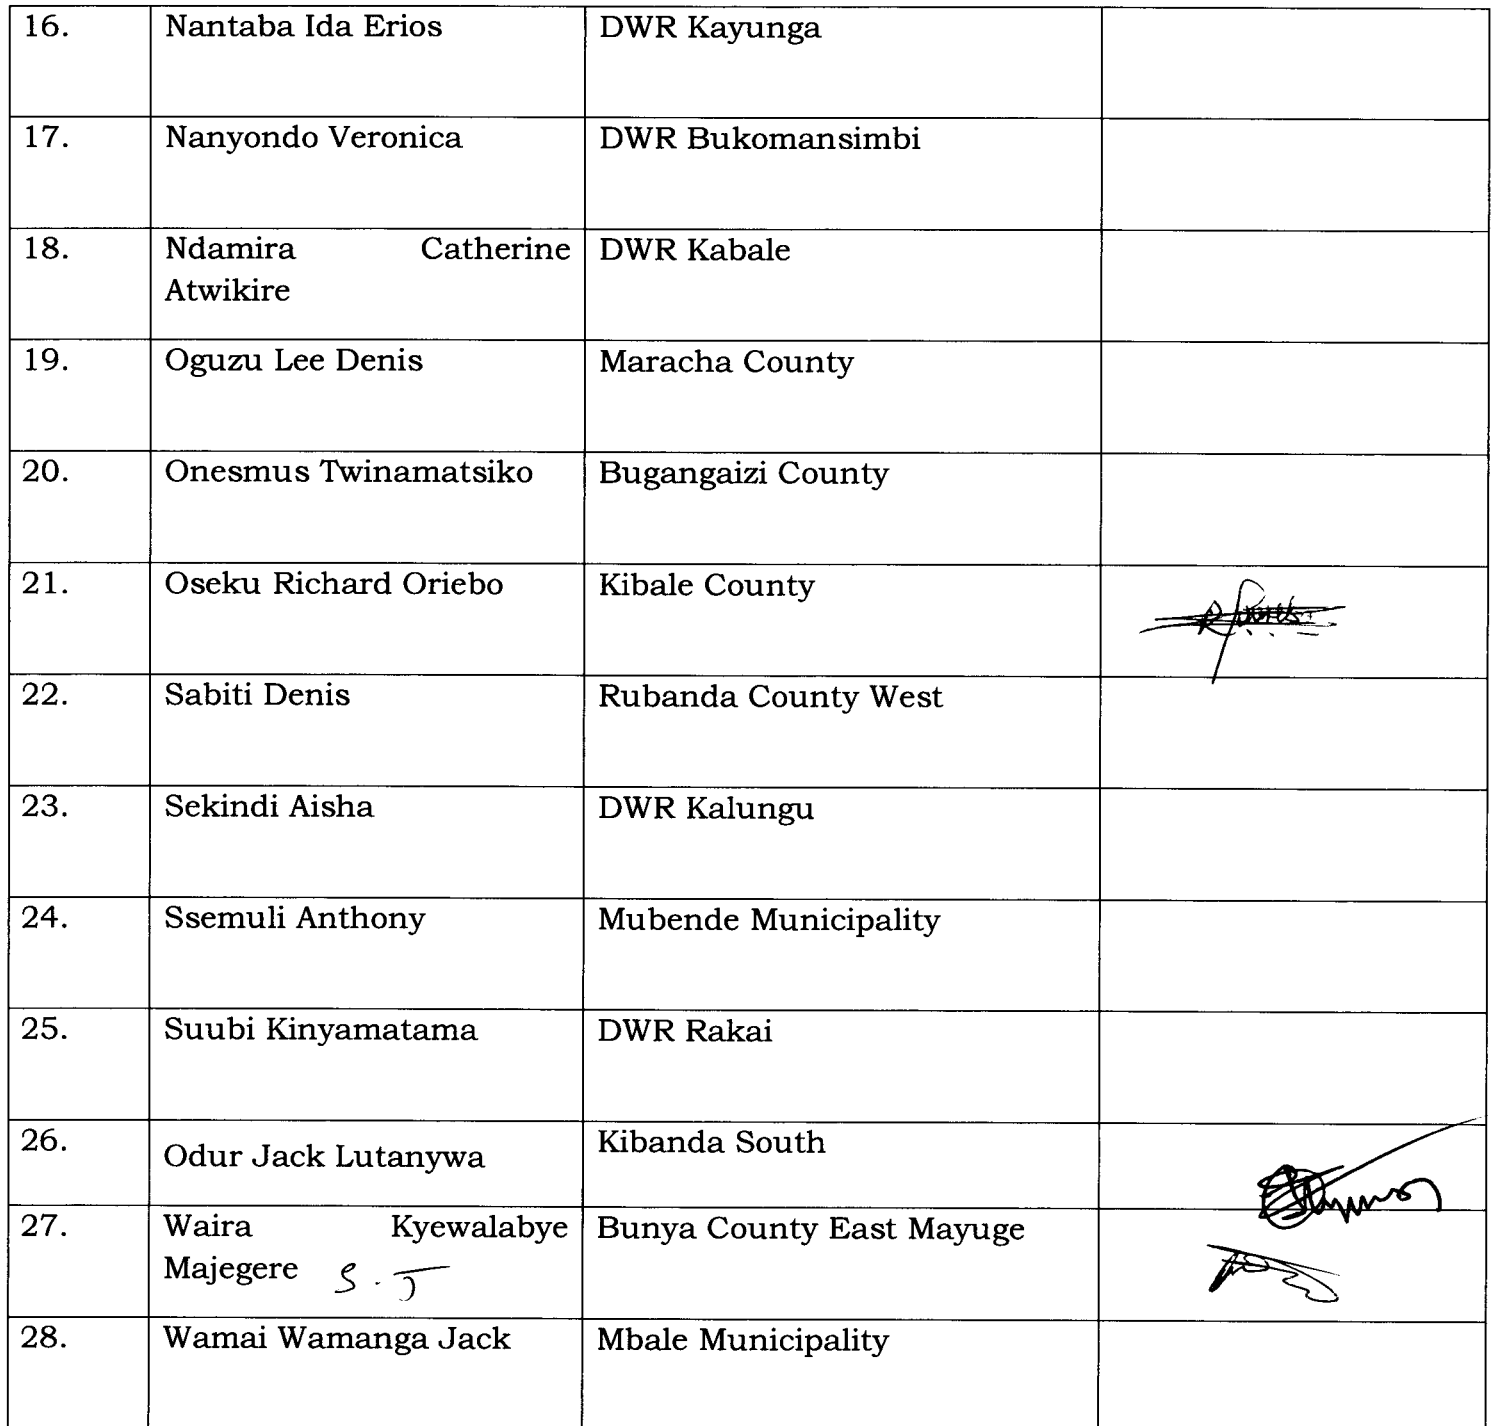 16. Nantaba Ida Erios DWR Kayunga
17. Nanyondo Veronica DWR Bukomansimbi
18. Ndamira Catherine DWR Kabale
Atwikire
19. Oguzu Lee Denis Maracha County
20. Onesmus Twinamatsiko Bugangaizi County
21. Oseku Richard Oriebo Kibale County
22. Sabiti Denis Rubanda County West
23. Sekindi Aisha DWR Kalungu
24. Ssemuli Anthony Mubende Municipality
25. Suubi Kinyamatama DWR Rakai
26. Odur Jack Lutanywa Kibanda South
27. Waira Kyewalabye Bunya County East Mayuge
Majegere S.J
28. Wamai Wamanga Jack Mbale Municipality